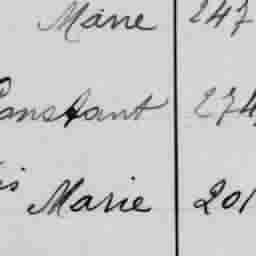 Marie 247
Constant 274
is Marie 201